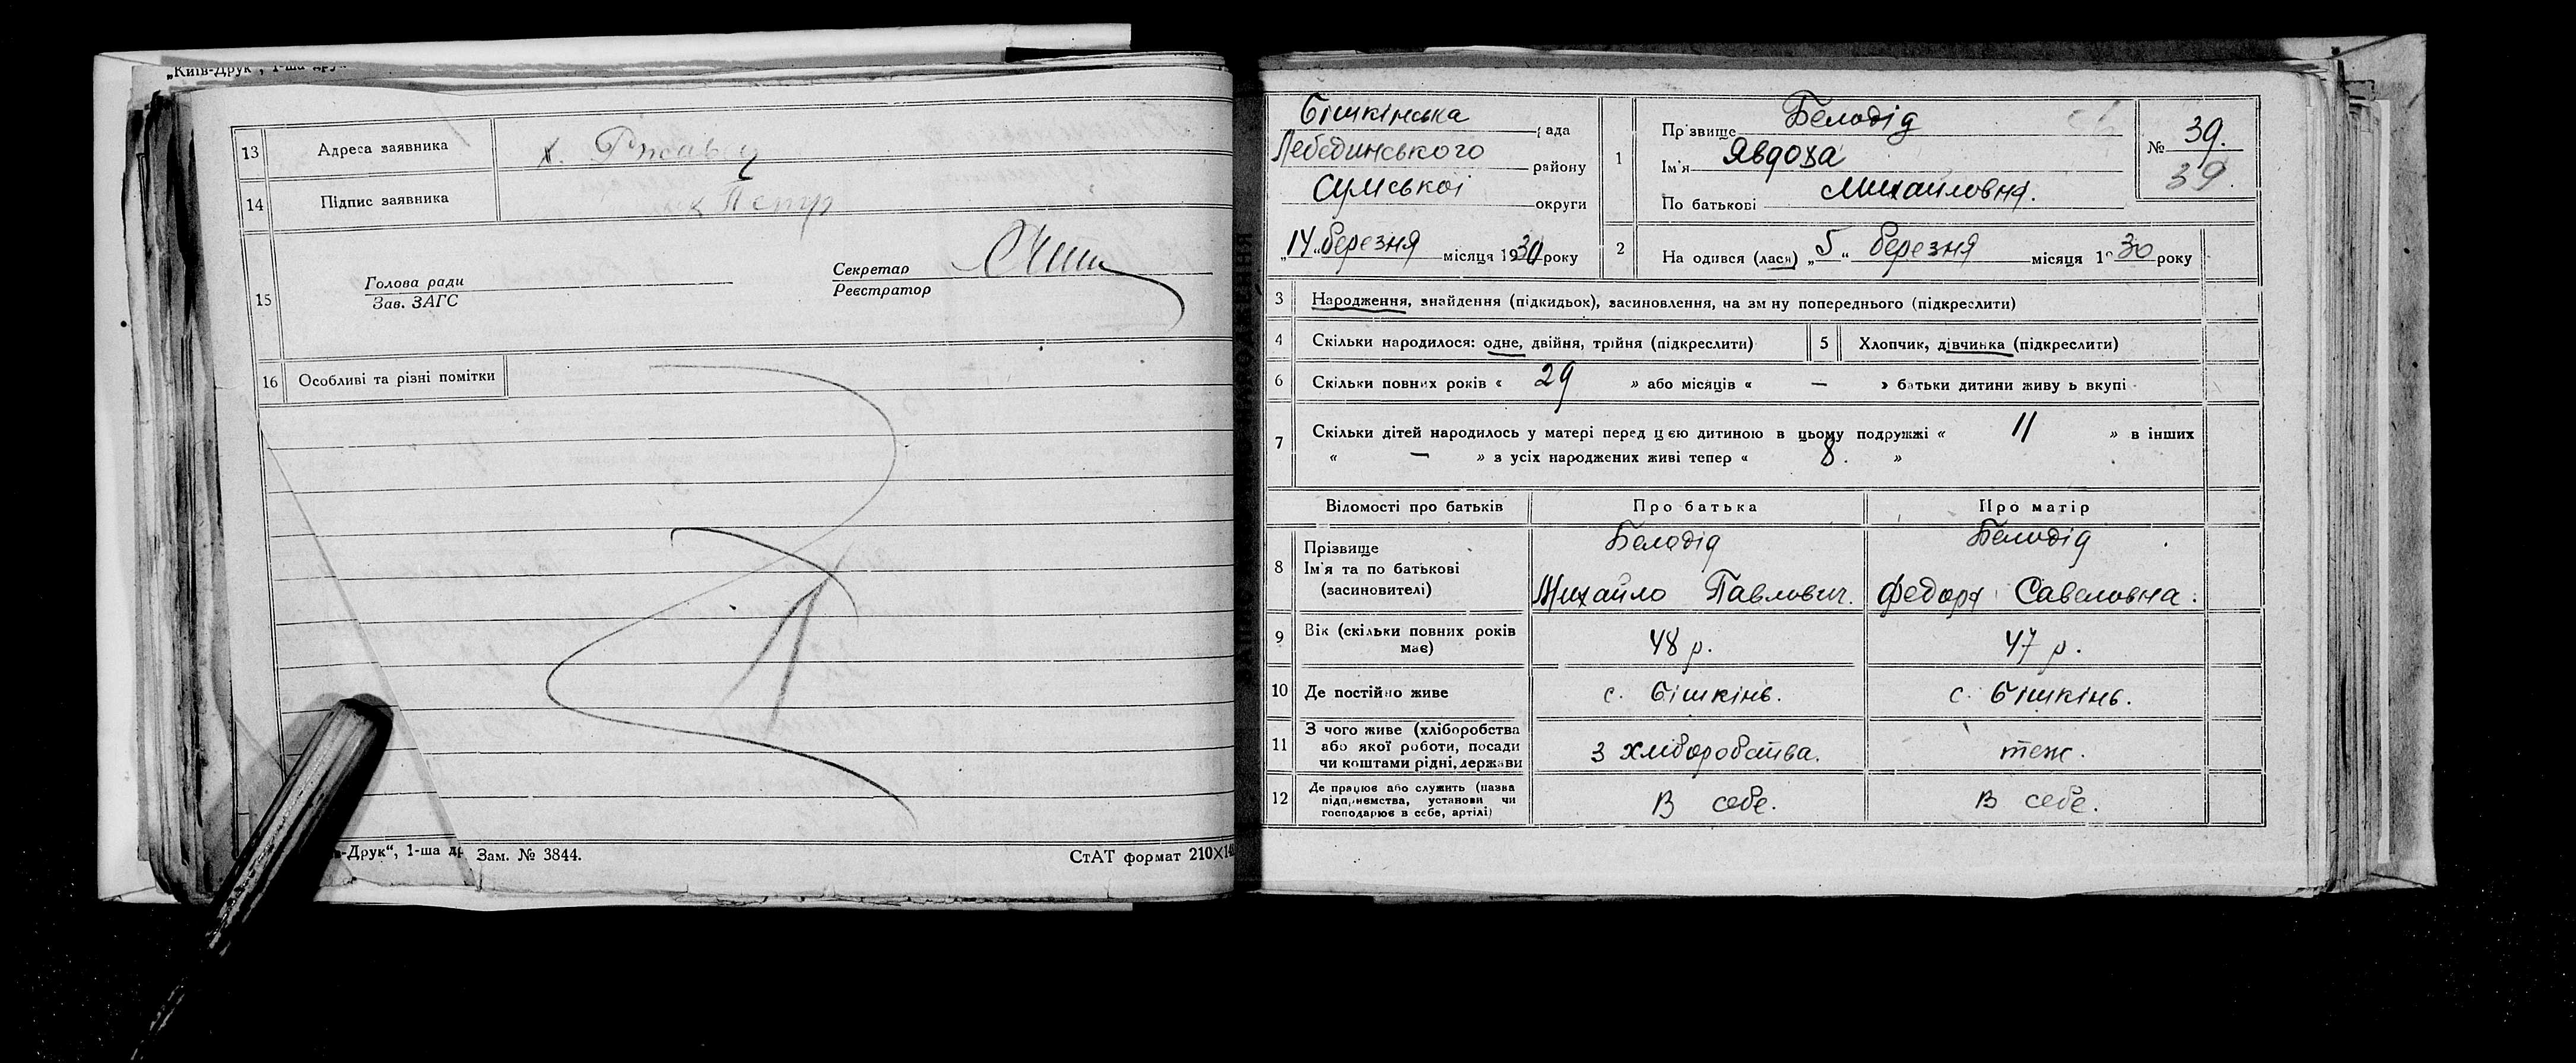 „Київ-Друк", 1-ша дру
13 Адреса заявника х.
14 Підпис заявника Петр
15 Голова ради
Зав. ЗАГС
Секретар
Реєстратор
16 Особливі та різні помітки
в-Друк“, 1-ша др Зам. № 3844.
СтАТ формат 210X14
Бішкінська рада
Лебединського району
Сумської округи
„14„ березня місяця 1930 року
1 Пр‍ізвище Белодід
Ім'я Явдоха
По батькові Михайловна.
№ 39.
39.
2 На одився (лася) „5“ березня місяця 1930 року
3 Народження, знайдення (підкидьок), засиновлення, на зм ну попереднього (підкреслити)
4 Скільки народилося: одне, двійня, трійня (підкреслити)
5 Хлопчик, дівчинка (підкреслити)
6 Скільки повних років « 29 » або місяців « — » батьки дитини живу ь вкупі
7 Скільки дітей народилось у матері перед цією дитиною в цьому подружжі « 11 » в інших
« — » з усіх народжених живі тепер « 8. »
Відомості про батьків Про батька Про матір
8 Прізвище Белодід Белодід
Ім'я та по батькові
(засновителі) Михайло Павлович. Федора Савеловна.
9 Вік (скільки повних років має) 48 р. 47 р.
10 Де постійно живе с. Бішкінь. с. Бішкінь.
11 З чого живе (хліборобства
або якої роботи, посади
чи коштами рідні, держави З хліборобства. теж.
12 Де працює або служить (назва
підприємства, установи чи
господарює в себе, артілі) В себе. В себе.